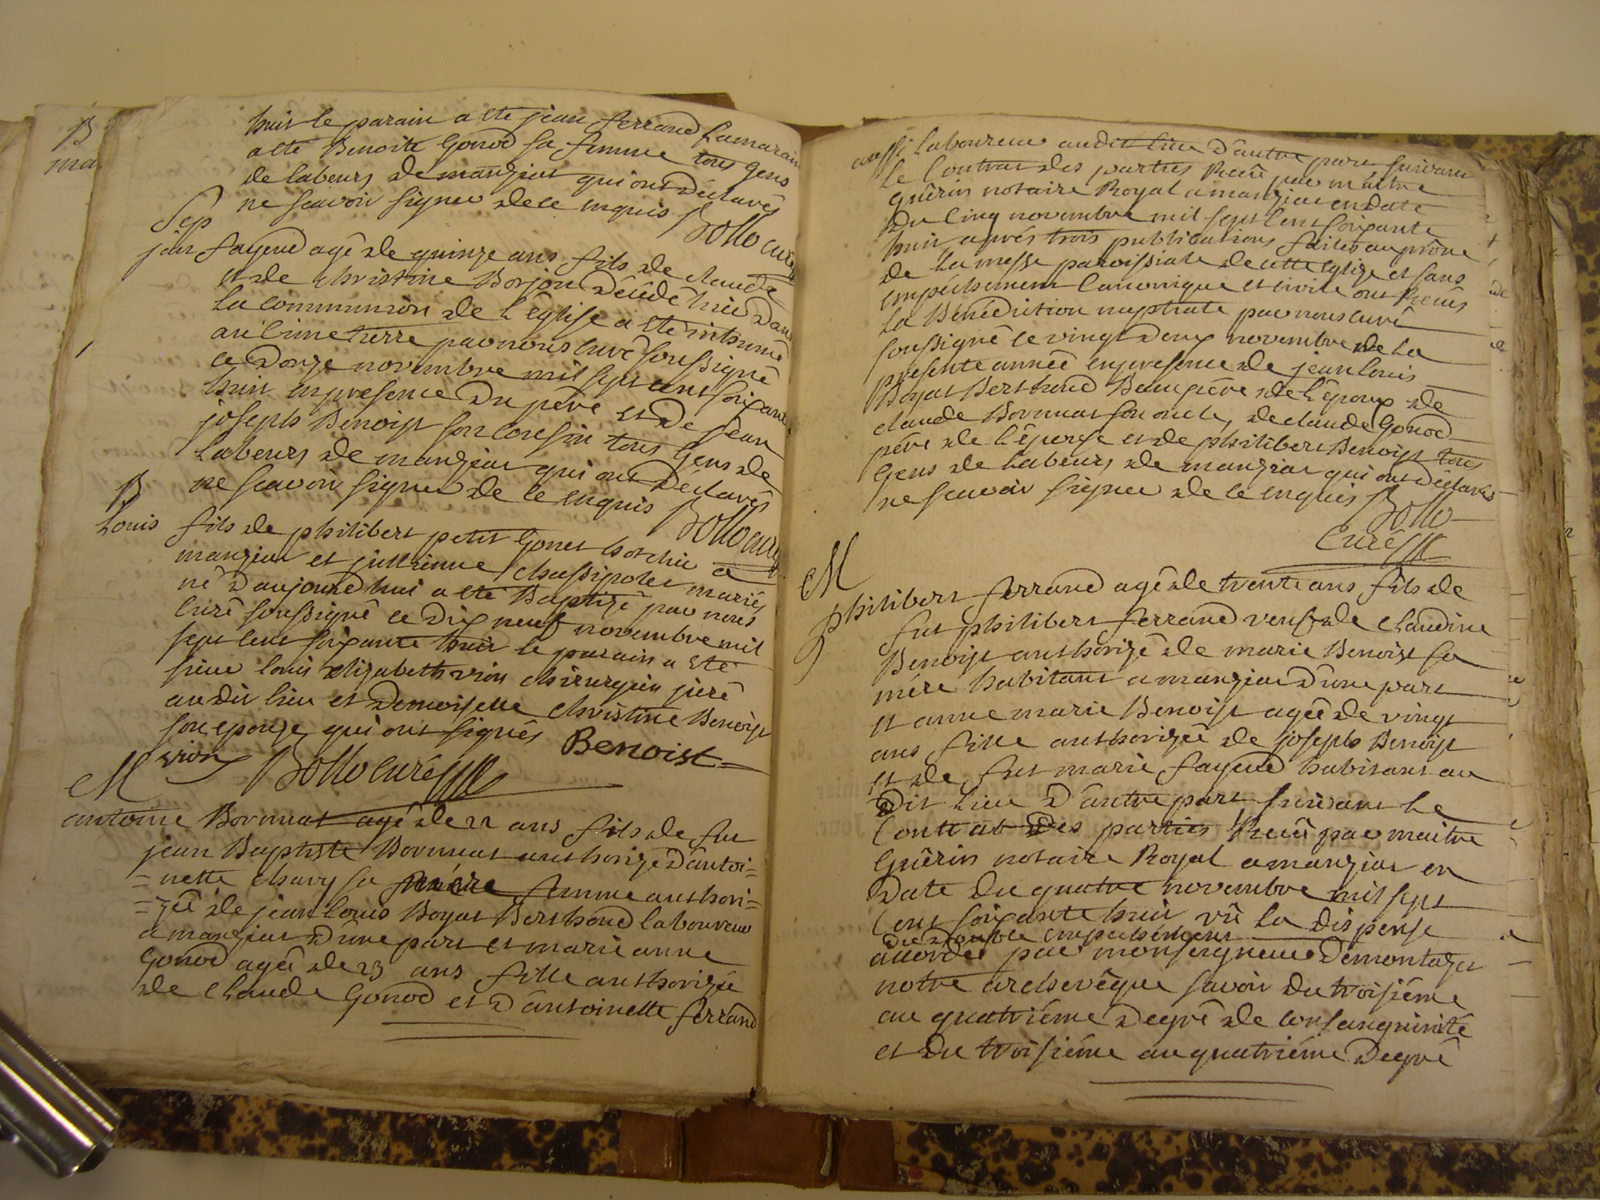 B
ma
huit le parain a ete jean ferrand La maraine
a ete Benoite Gonod sa femme tous gens
de labeurs de manziat qui ont déclarés
ne scavoir signer de ce enquis Bollo curé
Sep
jean fayend agé de quinze ans fils de claude
et de christine Borjon décédé hier dans
la communion de l'église a ete inhumé
au cimetierre par nous curé soussigné
ce douze novembre mil sept cent soixante
huit en presence du père et de jean
joseph Benoist son cousin tous gens de
labeurs de manziat qui ont déclarés
ne scavoir signer de ce enquis Bollo curé
B
Louis fils de philibert petit Gonet hotelier a
manziat et julienne chassipolet mariés
né d'aujourd'hui a ete Baptizé par nous
curé soussigné ce dix neuf novembre mil
sept cent soixante huit le parain a ete
sieur louis elizabeth vion chirurgien juré
au dit lieu et demoiselle christine Benoist
son epouze qui ont signés Benoist
vion Bollo curé
M
antoine Bormat agé de 22 ans fils de feu
jean Baptiste Bormat authorizé d'antoi=
=nette chavy sa mère femme authori=
=zée de jean louis Boyat Berthoud laboureur
a manziat d'une part et marie anne
Gonod agée de 23 ans fille authorizée
de claude Gonod et d'antoinette ferrand
aussi laboureur audit lieu d'autre part suivant
le contrat des parties Receu par maitre
guérin notaire Royal a manziat en date
du cinq novembre mil sept cent soixante
huit après trois publications faites au prône
de la messe paroissiale de cette eglize et sans
empechement canonique et civile ont Receus
la Bénédiction nuptiale par nous curé
soussigné ce vingt deux novembre de la
presente année en presence de jean louis
Boyat Berthoud Beaupère de l'époux de
claude Bormat son oncle, de claude Gonod
père de l'épouze et de philibert Benoist tous
gens de labeurs de manziat qui ont déclarés
ne scavoir signer de ce enquis Bollo
curé
M
philibert ferrand agé de trente ans fils de
fut philibert ferrand veuf de claudine
Benoist authorizé de marie Benoist sa
mère habitant a manziat d'une part
et anne marie Benoist agée de vingt
ans fille authorizée de joseph Benoist
et de fut marie fayend habitant au
dit lieu d'autre part suivant le
contrat des parties Receu par maitre
Guérin notaire Royal a manziat en
date du quatre novembre mil sept
cent soixante huit vû la dispense
du double empechement
accordée par monseigneur de montazet
notre archevêque savoir du troisième
au quatrième degré de consanguinité
et du troisième au quatrième degré